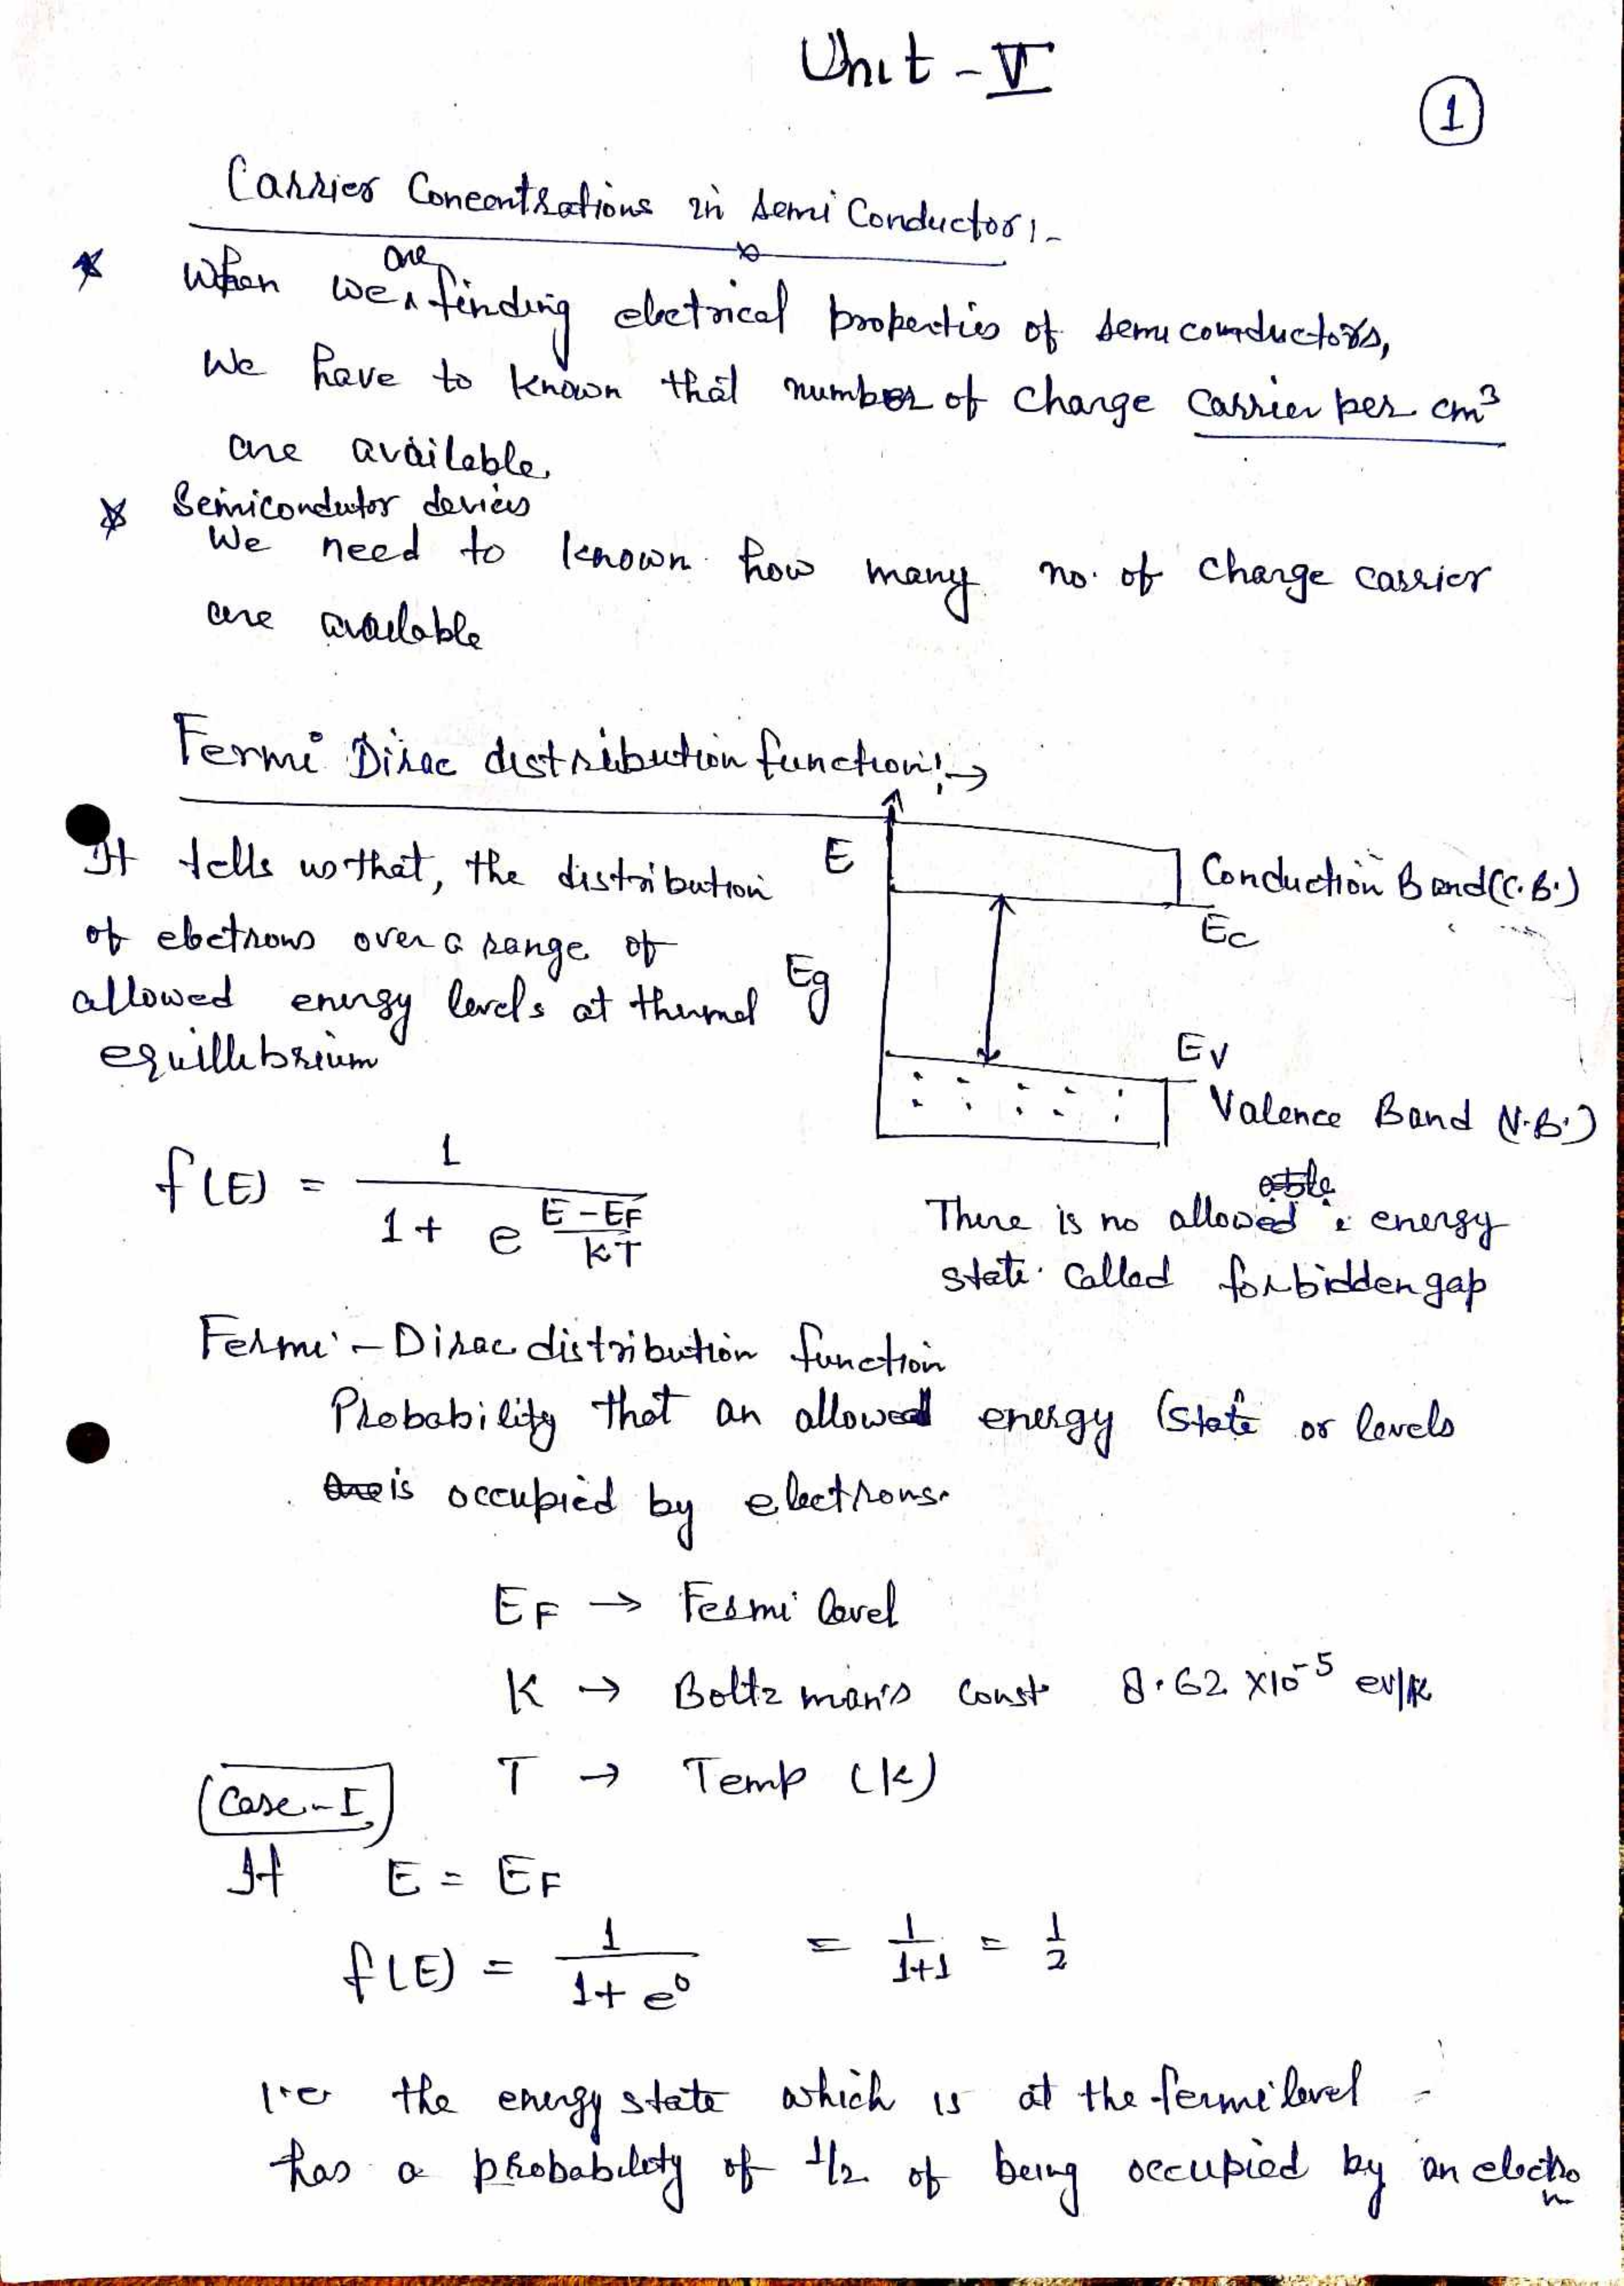 Unit - V
1
Carrier Concentrations in semi Conductor:-
* When we are finding electrical properties of semiconductors,
We have to known that number of charge carrier per cm³
are available.
* Semicondutor devices
We need to known how many no. of charge carrier
are available
Fermi Dirac distribution function:→
It tells us that, the distribution
of electrons over a range of
allowed energy levels at thermal
equillibrium
E
Conduction Band (C.B.)
Ec
Eg
Ev
Valence Band (V.B.)
f(E) = 1 / (1 + e^((E - EF)/kT))
There is no allowed energy
state called forbidden gap
Fermi - Dirac distribution function
Probability that an allowed energy (state or levels
is occupied by electrons.
EF → Fermi level
K → Boltzman's const 8.62 x10⁻⁵ ev/K
T → Temp (k)
Case - I
If E = EF
f(E) = 1 / (1 + e⁰) = 1/(1+1) = 1/2
i.e. the energy state which is at the fermi level
has a probability of 1/2 of being occupied by an electron